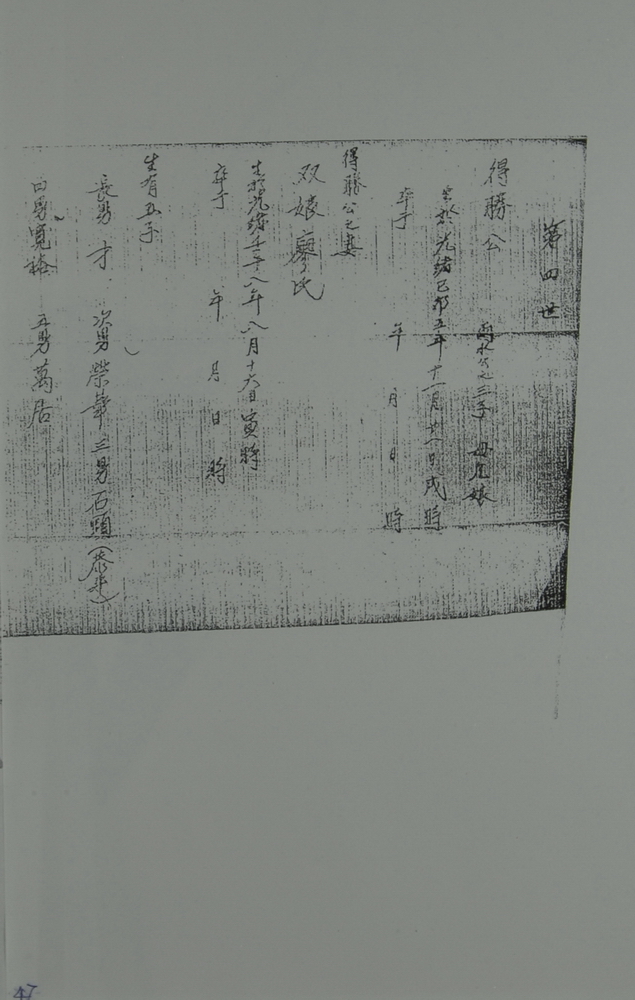 第四世
得勝公
雨水公之三子 母屘娘
生於光緒己卯五年十一月廿一日戌時
卒于 年 月 日 時
得勝公之妻
双娘廖氏
生於光緒 八年八月十六日寅時
卒于 年 月 日 時
生有五子
長男 才 次男榮華 三男石頭
四男寬裕 五男萬居
47